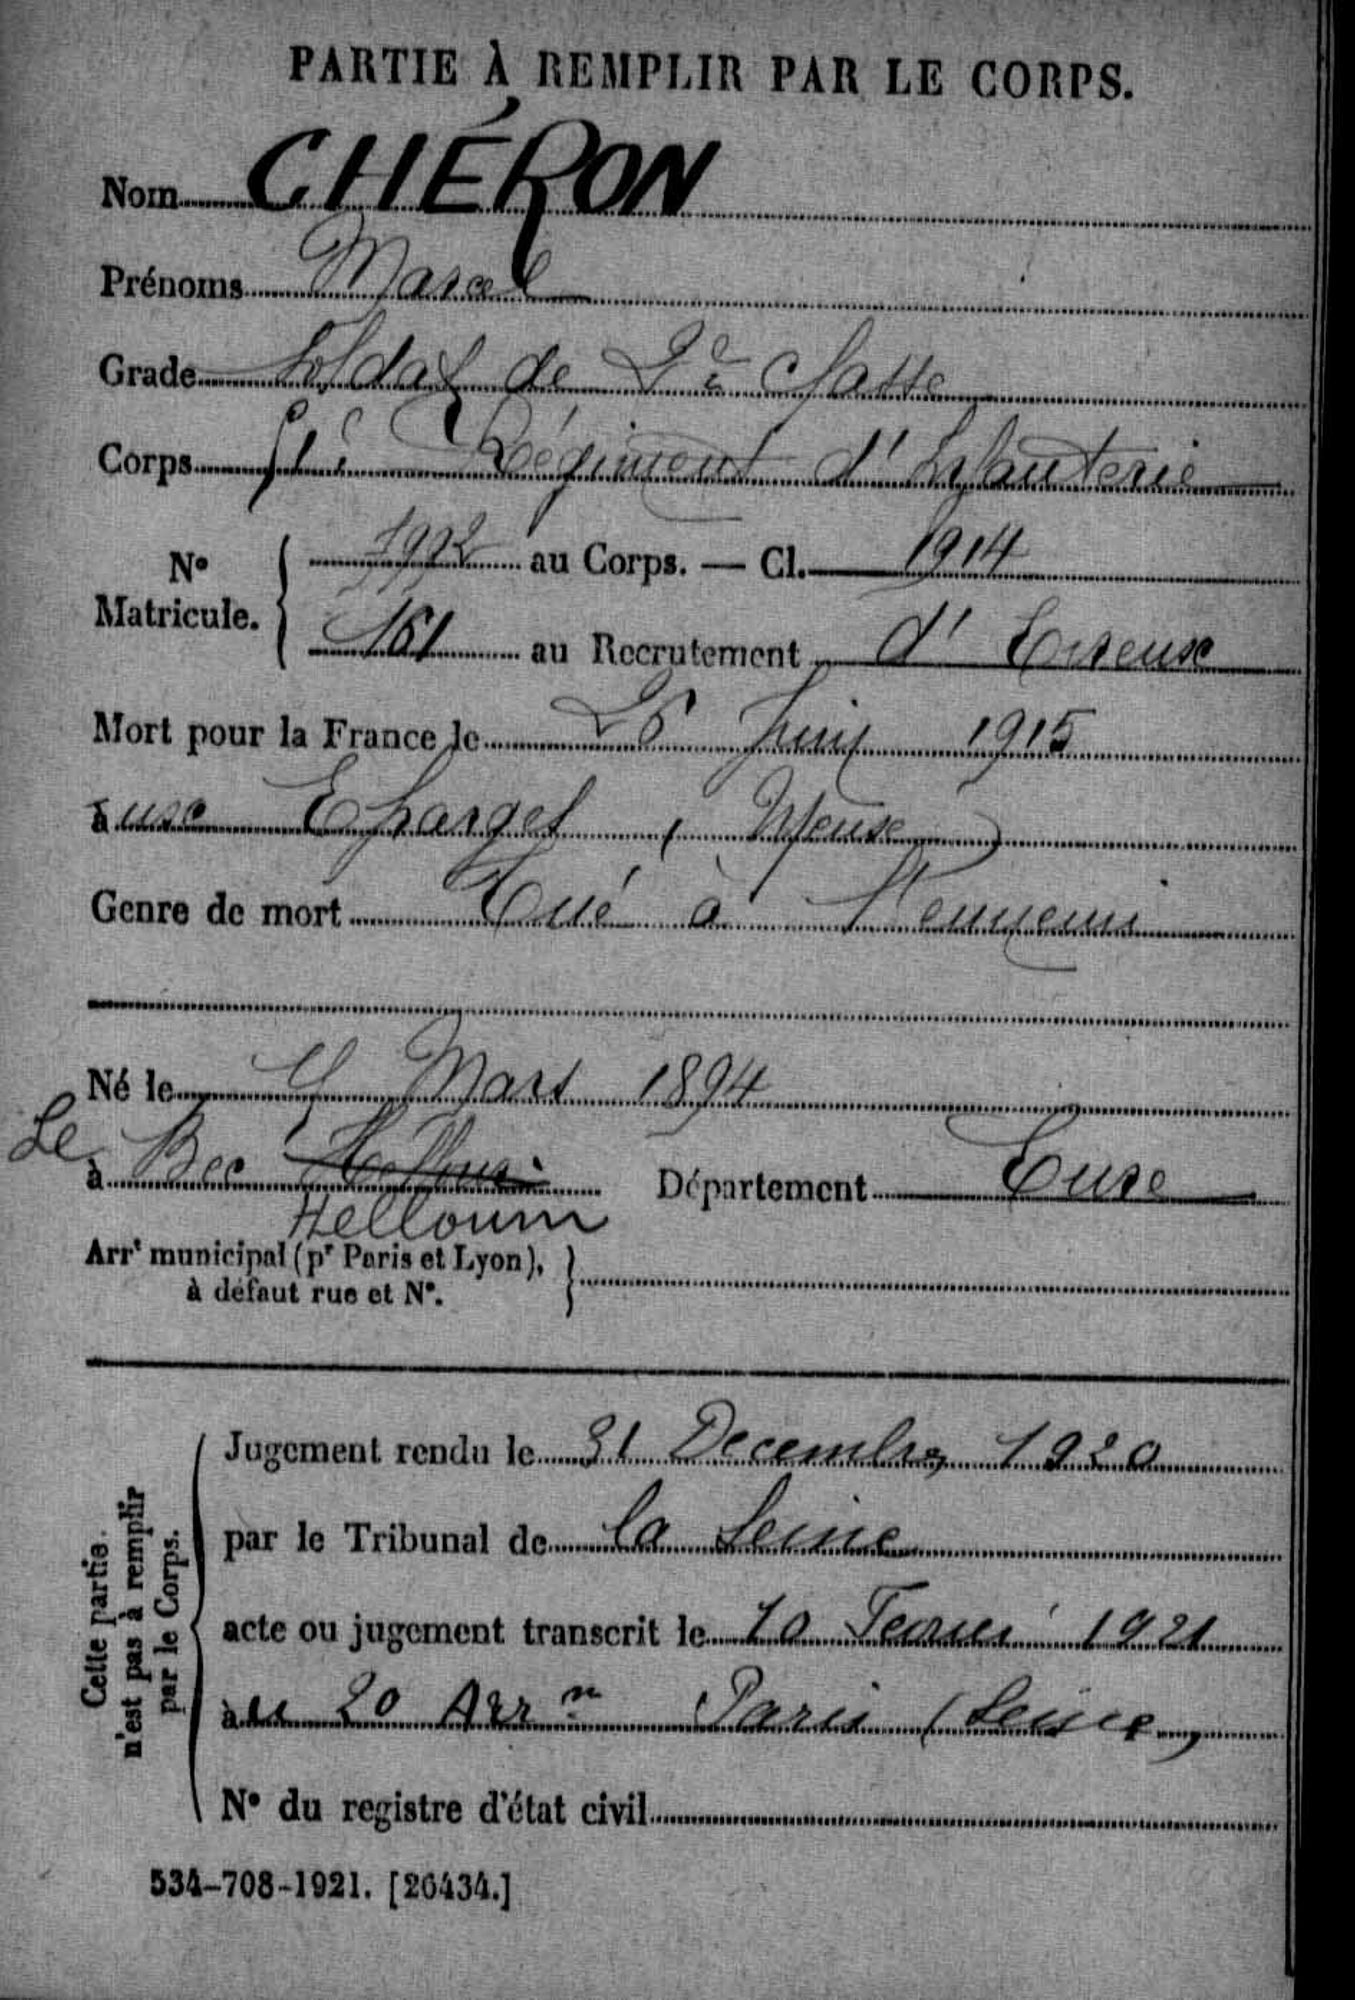 PARTIE À REMPLIR PAR LE CORPS.
Nom CHÉRON
Prénoms Marcel
Grade Soldat de 2e classe
Corps Régiment d'Infanterie
N° Matricule. au Corps. — Cl. 1914
161 au Recrutement d'
Mort pour la France le 26 Juin 1915
à aux Eparges (Meuse)
Genre de mort Tué à l'ennemi
Né le Mars 1894
Le
à Bec Département Eure
Hellouin
Arrt municipal (pr Paris et Lyon),
à défaut rue et N°.
Cette partie
n'est pas à remplir
par le Corps.
Jugement rendu le 31 Decembre 1920
par le Tribunal de la Seine
acte ou jugement transcrit le 10 Fevrier 1921
à au 20 Arrn Paris (Seine)
N° du registre d'état civil
534-708-1921. [26434.]